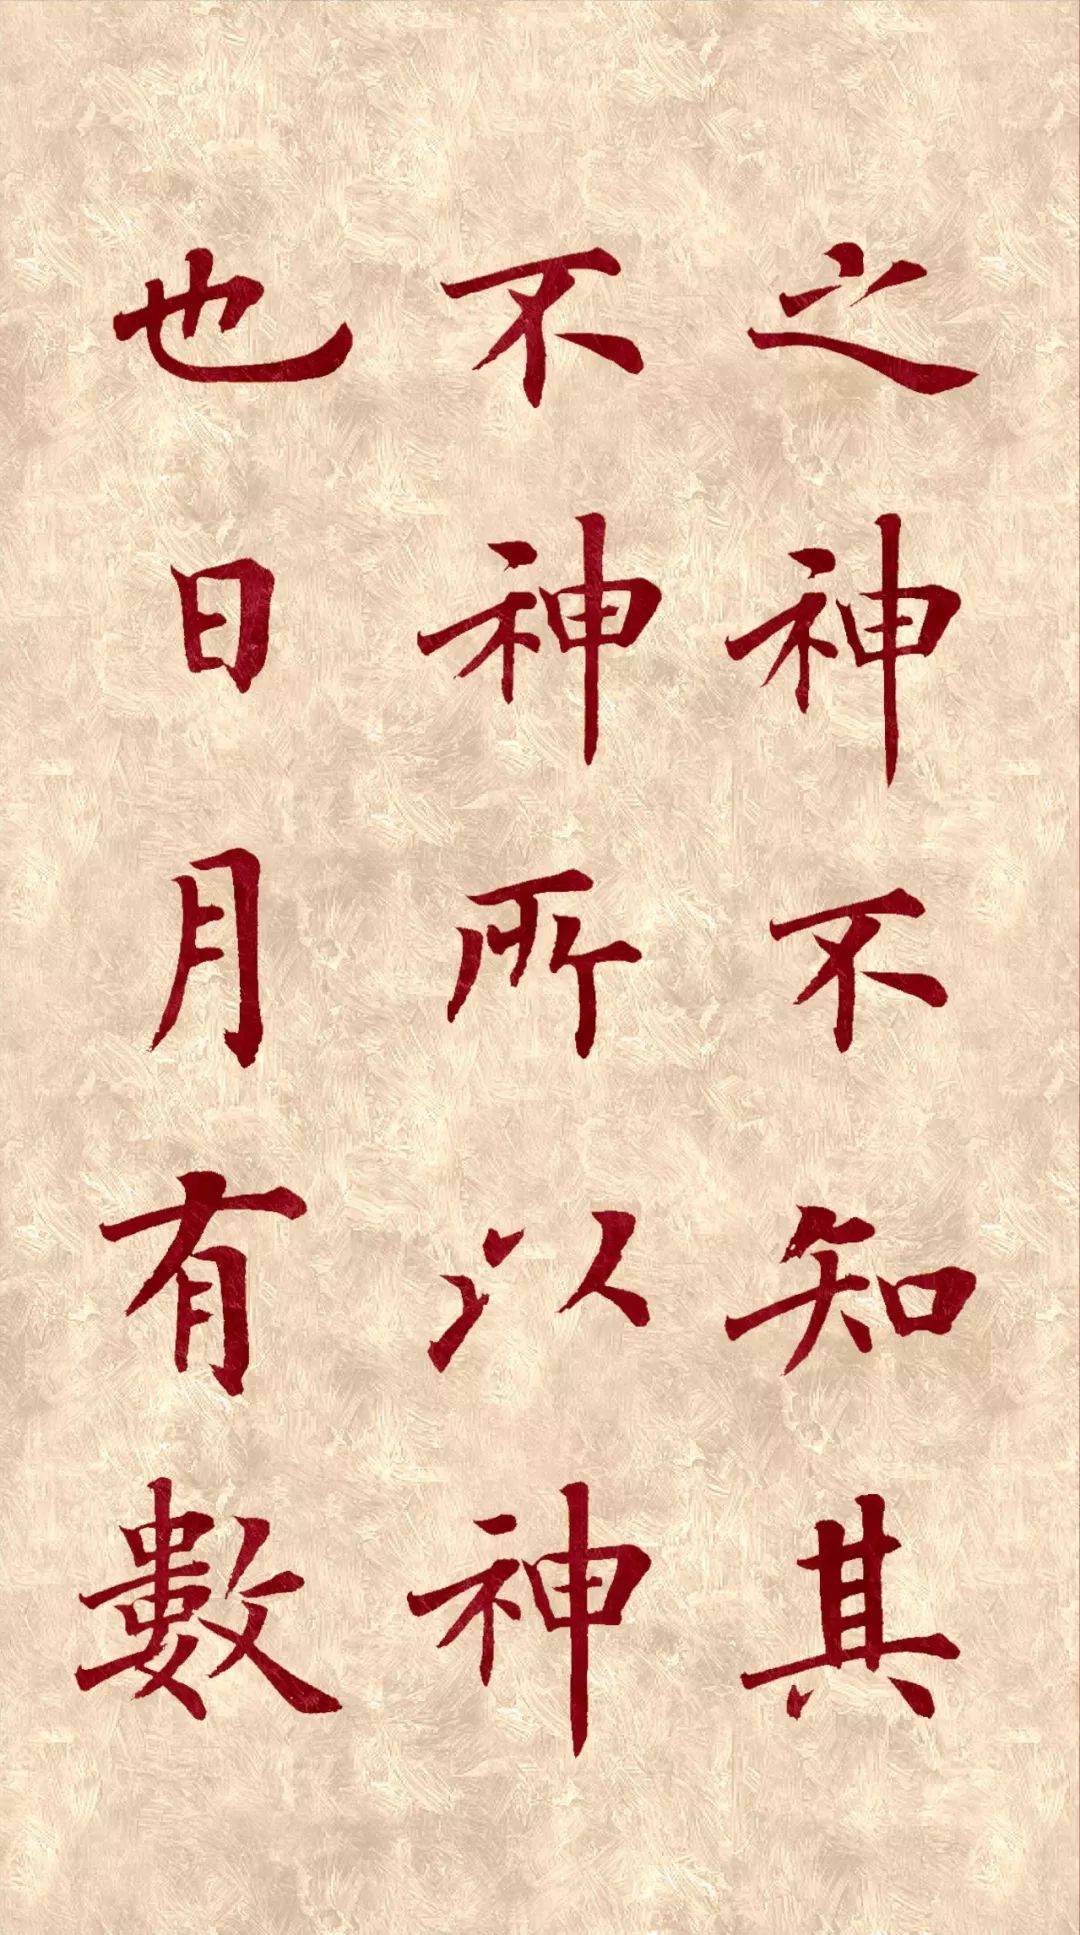 之神不知其
不神所以神
也日月有數